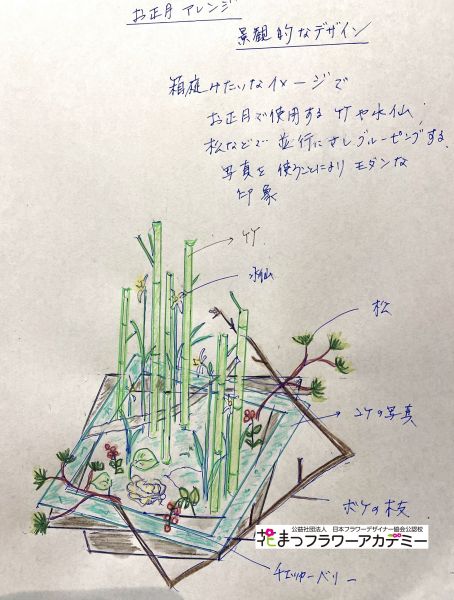 お正月アレンジ
景観的なデザイン
箱庭みたいなイメージで
お正月で使用する竹や水仙、
松などで並行にさしグルーピングする。
写真を使うことによりモダンな
印象
竹
水仙
松
コケの写真
ボケの枝
公益社団法人 日本フラワーデザイナー協会公認校
花まつフラワーアカデミー
チェッカーベリー